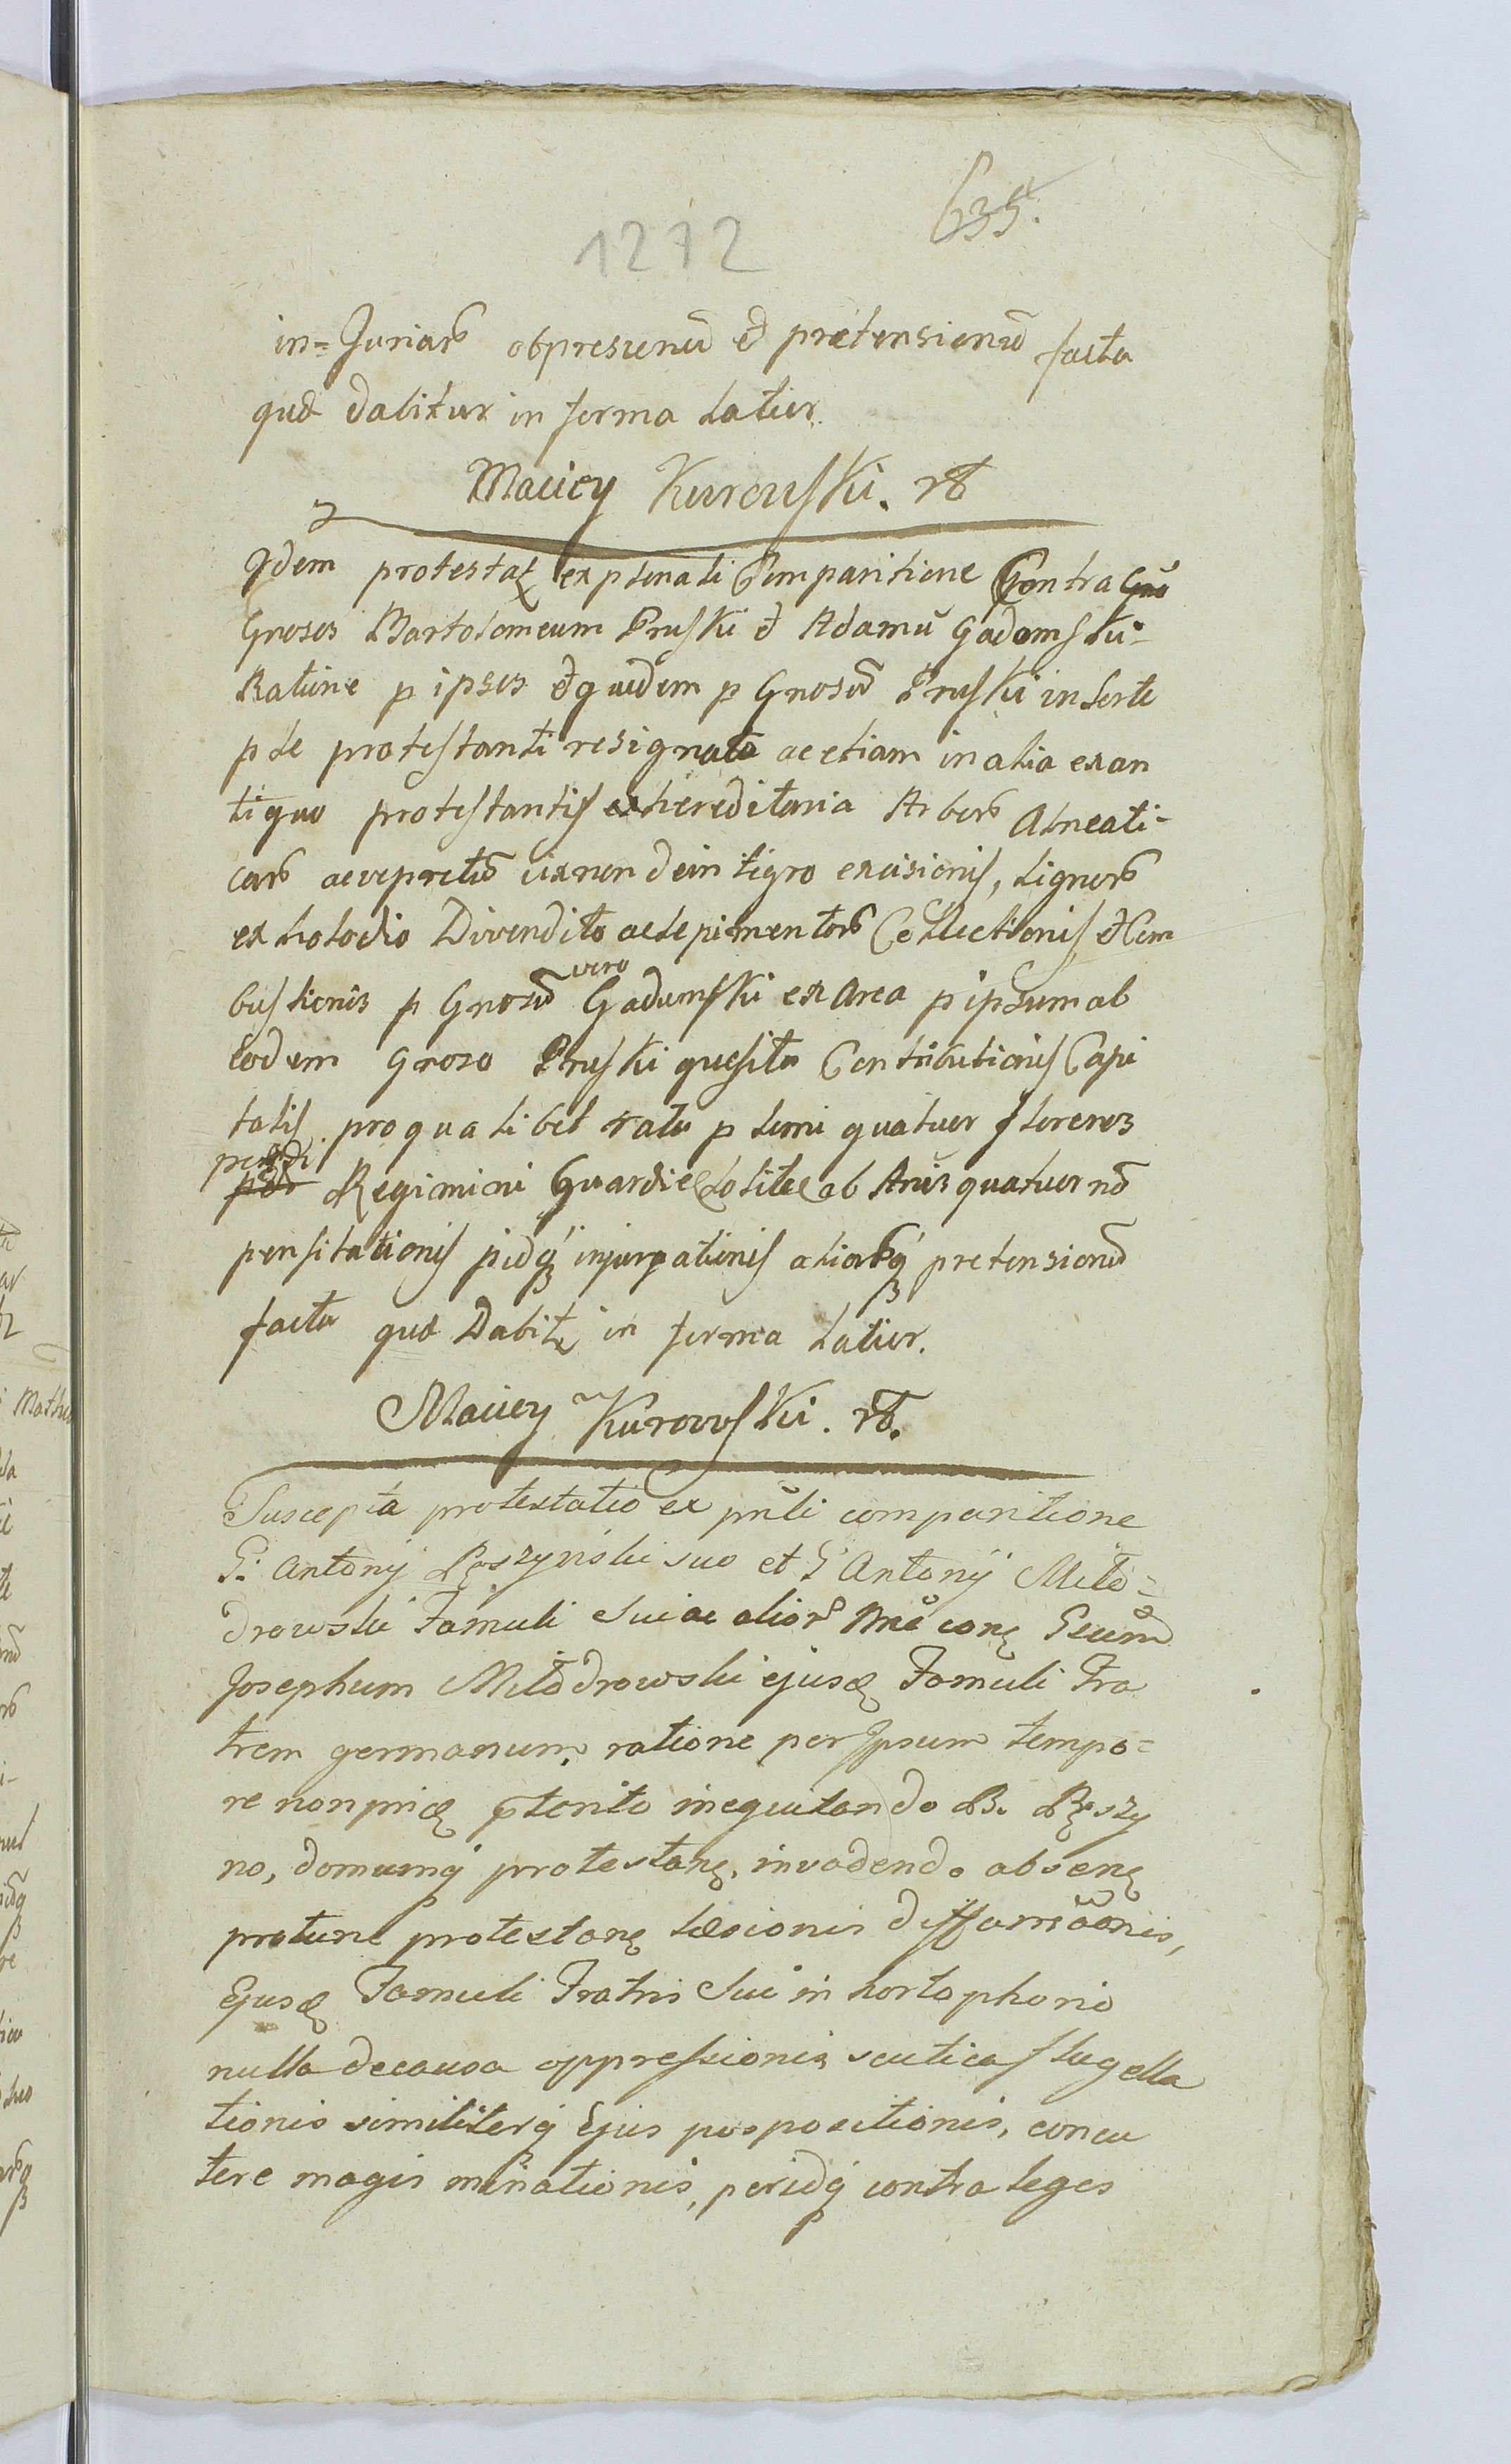 635.
1272
in=Juriarũ obpresionũ et prætensionũ facta
quæ dabitur in forma Latior.
Maciey Kurowski. rb
Jdem protestat͛ ex plenali Comparitione Contra Gnõ
Gnosos Bartolomeum Pruski et Adamũ Gadomski-
Ratione p ipsos et quidem p Gnosũ Pruski in Sorte
p se protestanti resignata ac etiam in alia ex an
tiquo protestantis ex hereditaria Arborũ Alneati-
carũ ac vepretũ excisionis, Lignorũ
ex Divendito ac sepimentorũ Collectionis et Com
bustionis p Gnosũ vero Gadumski ex Area p ipsum ab
eodem Gnoso Pruski quesita Contributionis Capi
talis pro qualibet rata p florenos
Regimini Guardie ab Anis quatuor nõ
pensitationis pidq́ aliarũq́ pretensionũ
facta quæ Dabit͛ in forma Latior.
Maciey Kurowski. rb.
Suscepta protestatio ex pñli comparitione
G: Antonij Ręszyński suo et G Antonij Miło=
drowski Famuli Sui ac aliorũ nñe conę Gsum
Josephum Miłodrowski ejusdę Famuli Fra
trem germanum, ratione per Jpsum tempo=
re non pridę ptento inequitando B. Ręszy
no, domumq́ protestanę, invadendo absenę
protunc protestanę Læsionis diffamãõnis,
Ejusdę Famuli Fratris Sui in hortophorio
nulla de causa oppressionis scutica flagella
tionis similiterq́ Ejus pospositionis, concu
tere magis minationis, peridq́ contra leges